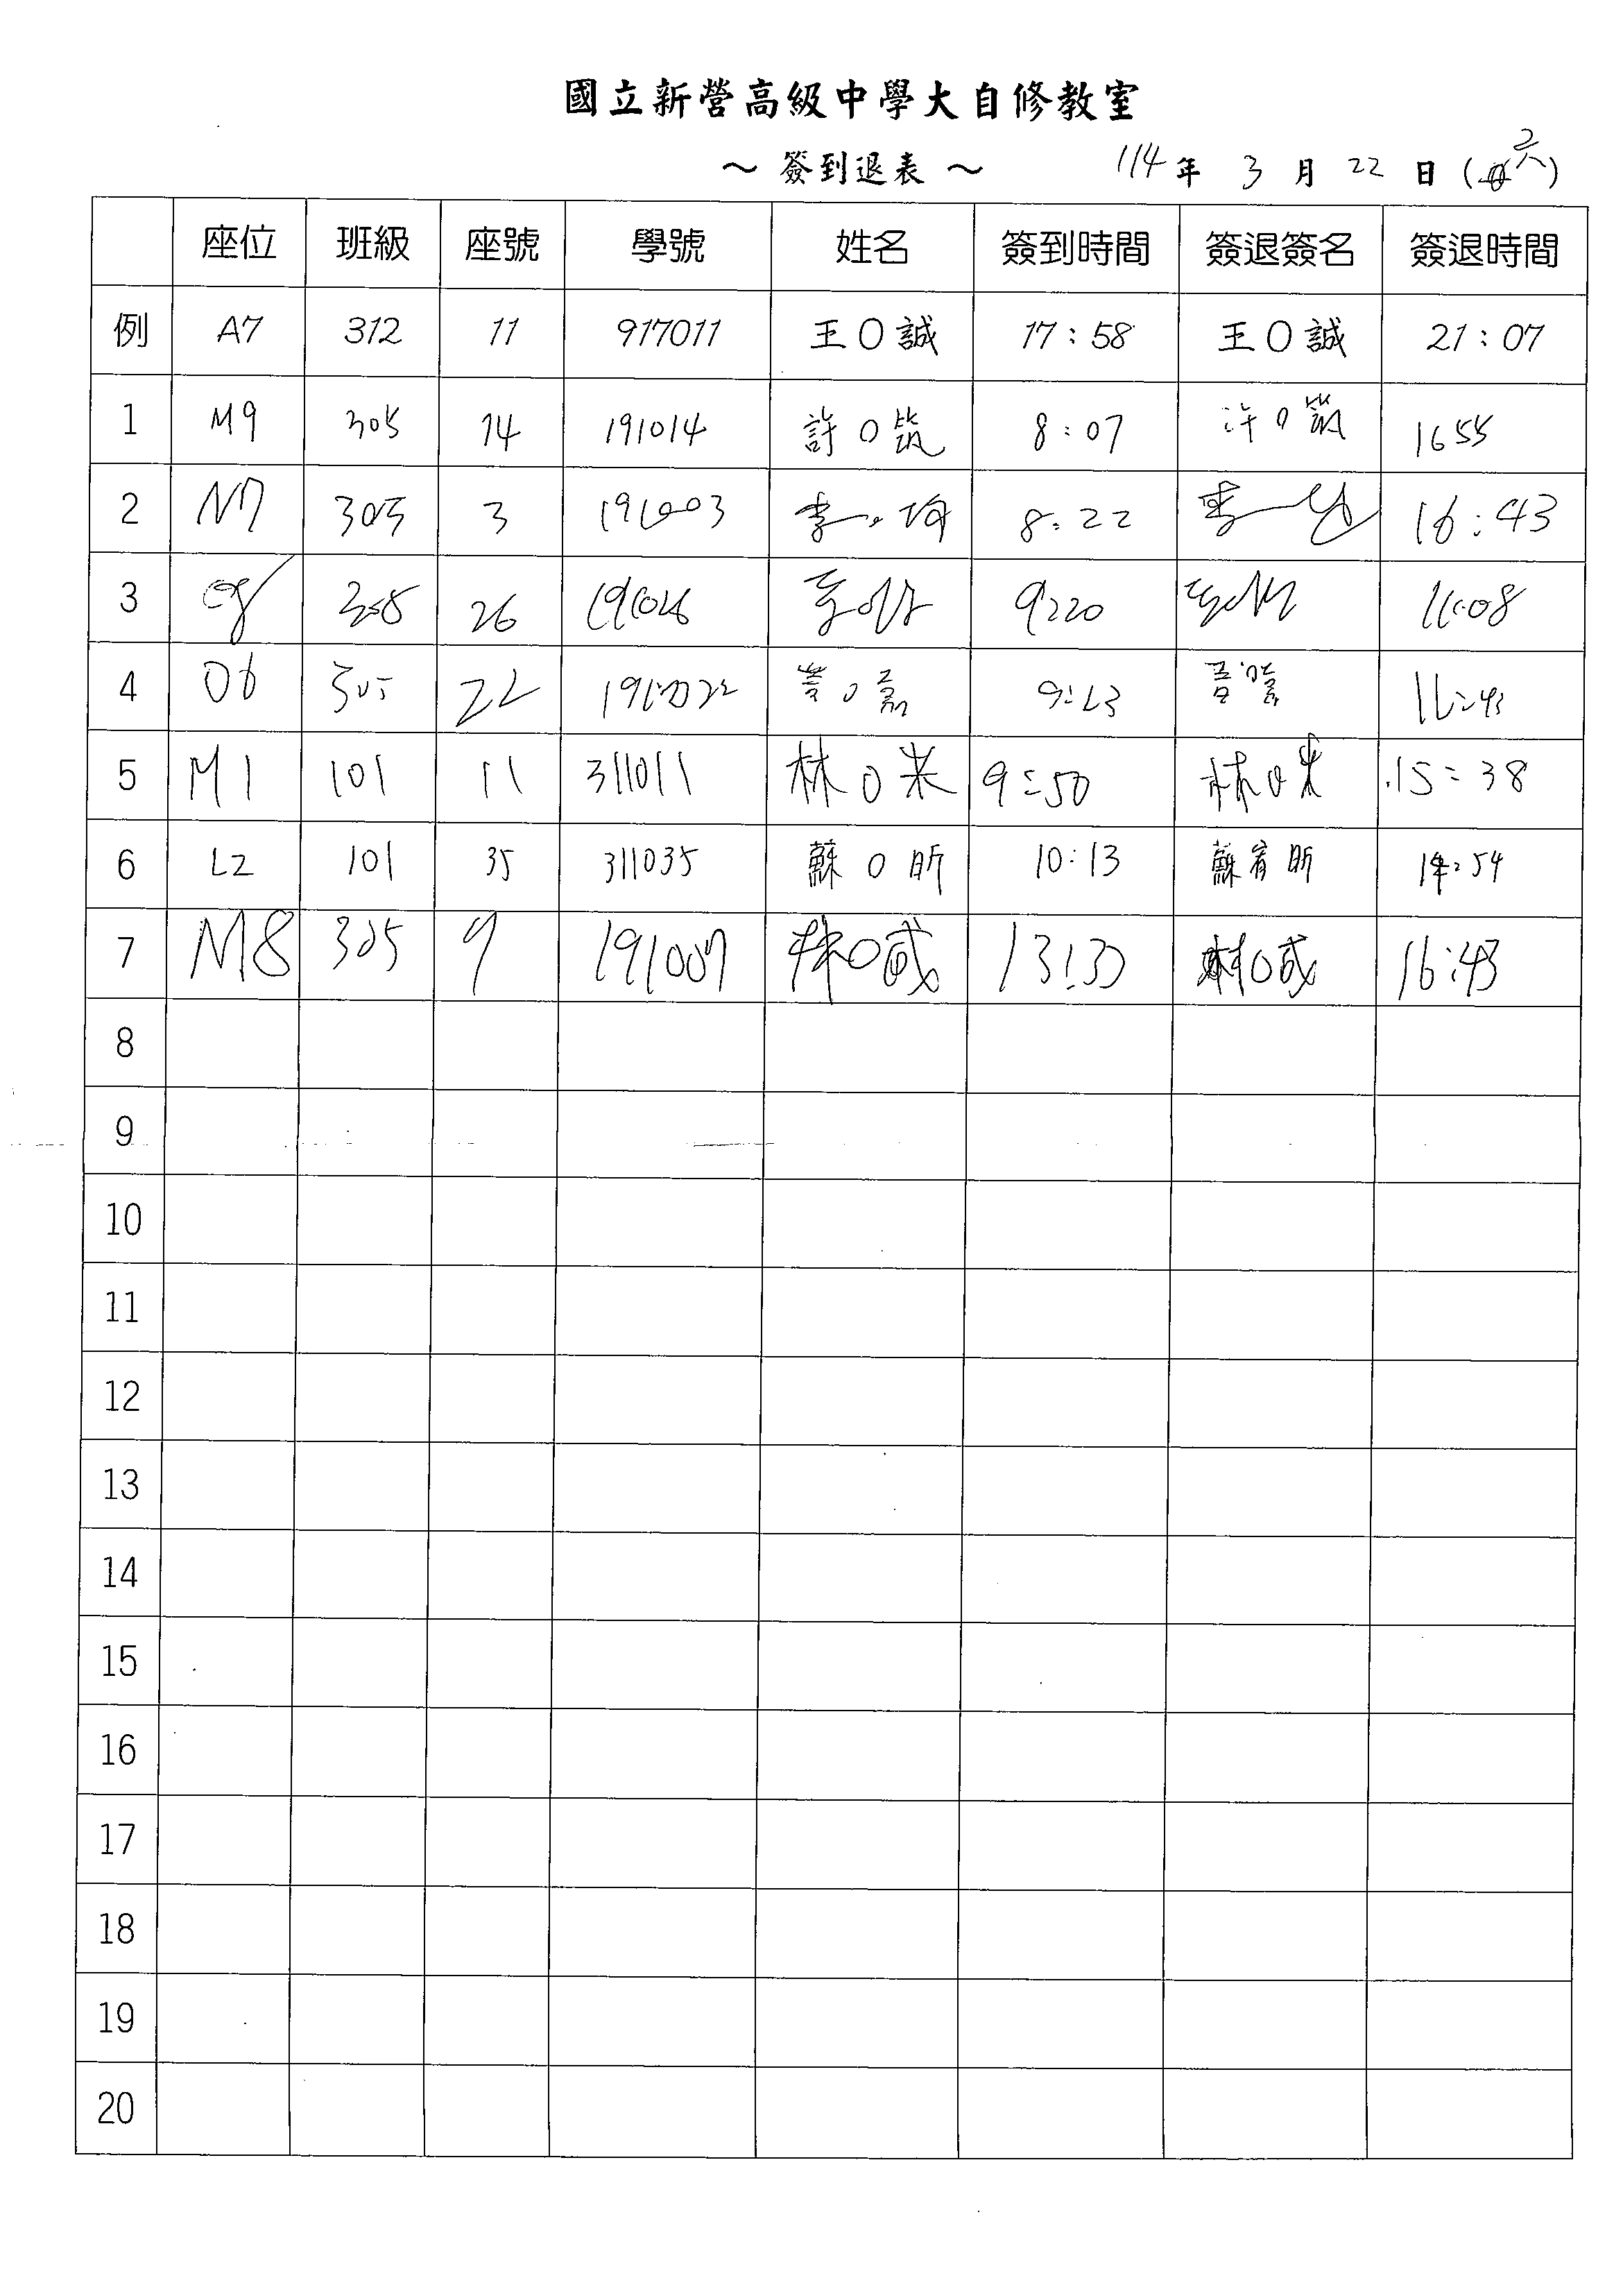 國立新營高級中學大自修教室
～ 簽到退表 ～ 114 年 3 月 22 日 (六)
座位 班級 座號 學號 姓名 簽到時間 簽退簽名 簽退時間
例 A7 312 11 917011 王O誠 17:58 王O誠 21:07
1 M9 305 14 191014 許O筑 8:07 許O筑 1655
2 N7 305 3 191003 李 8:22 李 16:43
3 26 9:20
4 O6 305 22 9:23
5 M1 101 11 311011 林O米 9:50 林O米 15:38
6 L2 101 35 311035 蘇O昕 10:13 蘇宥昕 14:54
7 M8 305 9 林O葳 13:30 林O葳 16:43
8
9
10
11
12
13
14
15
16
17
18
19
20